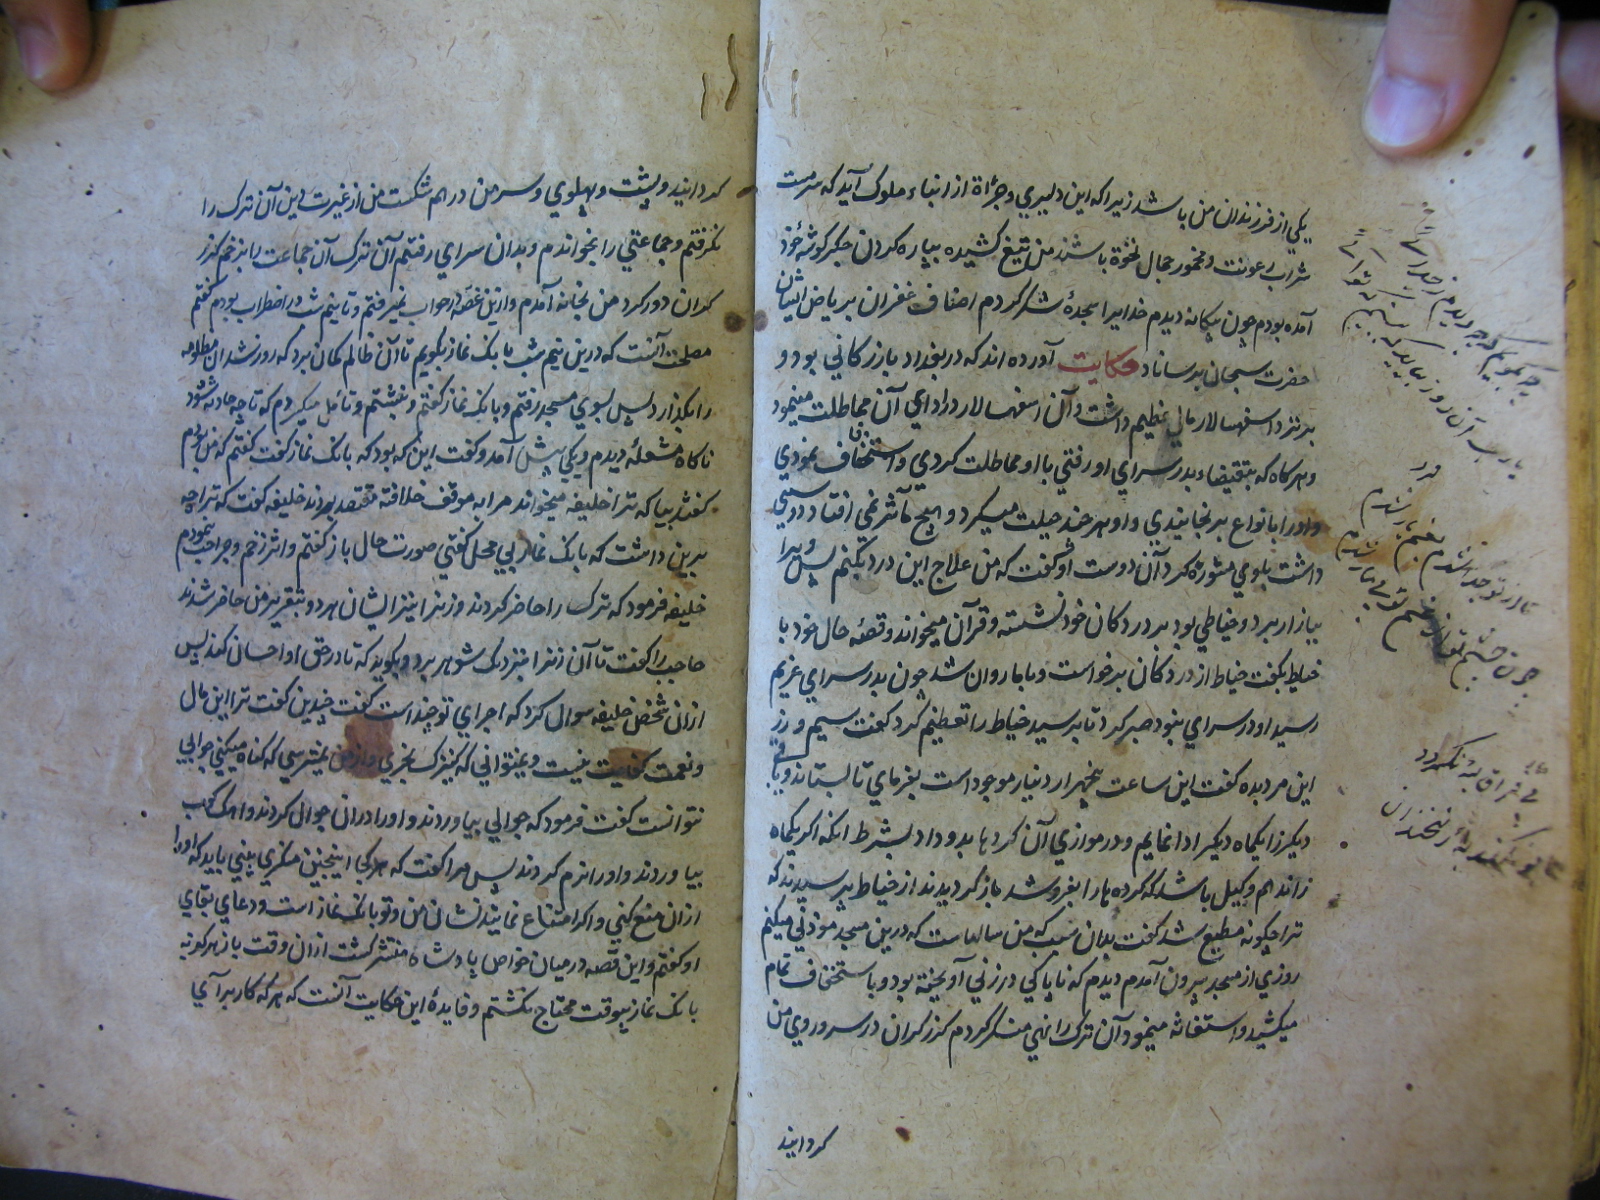 یکی از فرزندان من باشد زیرا که این دلیری و جرأة از ابناء ملوک آید که سرمست
شراب رعونت و مخمور جمال نخوة باشند من تیغ کشیده بپاره کردن جگر گوشهٔ خود
آمده بودم چون بیکانه دیدم خدایرا سجدهٔ شکر کردم اصناف غفران بریاض ایشان
حضرت سبحان برساناد حکایت آورده اند که در بغداد بازرکانی بود و
بر نزد اسفهسالار مالی عظیم داشت و آن اسفهسالار در ادای آن مماطلت مینمود
و هرکاه که بتقیضاء بدر سرای او رفتی با او مماطلت کردی و استخفاف نمودی
و او را بانواع برنجانیدی و او هر چند حیلت میکرد و هیچ مآثر نمی افتاد دوستی
داشت با وی مشورة کرد آن دوست او گفت که من علاج این درد بکنم پس ویرا
ببازار برد و خیاطی بود بر در دکان خود نشسته و قرآن میخواند و قصهٔ حال خود با
خیاط بکفت خیاط از در دکان برخواست و با ما روان شد چون بدر سرای غریم
رسید او در سرای نبود صبر کرد تا برسید خیاط را تعظیم کرد کفت سیم و زر
این مرد بده کفت این ساعت پنجهزار دینار موجود است بفرمای تا بستاند و باقی
دیکر را یکماه دیکر ادا نمایم و در موازی آن کروها بدو داد بشرط انکه اکر یکماه
زاند هم وکیل باشد که کروها را بفروشد باز کردیدند از خیاط پرسیدند که
ترا چکونه مطیع شد کفت بدان سبب که من سالهاست که درین مسجد موذنی میکنم
روزی از مسجد بیرون آمدم دیدم که ناپاکی در زنی آویخته بود و با استخفاف تمام
میکشید و استغاثه مینمود آن ترک را نهی منکر کردم کرز کران در سر و روی من
کردانید
کردانید و پشت و پهلوی و سر من در هم شکست من از غیرت دین آن ترک را
نکرفتم و جماعتی را بخواندم و بدان سرای رفتم آن ترک آن جماعت را بزخم کرز
کران دور کرد من بخانه آمدم و ازین غصه در خواب نمیرفتم و تا نیم شب در اضطراب بودم کفتم
مصلحت آنست که درین نیم شب بانک نماز بکویم تا آن ظالم کمان برد که روز شد آن مظلومه
را بکذارد پس بسوی مسجد رفتم و بانک نماز کفتم و بنشستم و تأمل میکردم که تا چه حادثه شود
ناکاه مشعلهٔ دیدم و یکی پیش آمد و کفت این که بود که بانک نماز کفت کفتم که من بودم
کفت بیا که ترا خلیفه میخواند مرا به موقف خلافة مقتصد بردند خلیفه کفت که ترا چه
برین داشت که بانک نماز بی محل کفتی صورت حال باز کفتم و اثر زخم و جراحت نمودم
خلیفه فرمود که ترک را حاضر کردند و زنرا نیز ایشان هر دو بتقریر من حاضر شدند
حاجب را کفت تا آن زنرا بنزدیک شوهر برد و بکوید که تا در حق او احسان کند پس
ازان شخص خلیفه سوال کرد که اجرای تو چند است کفت چندین کفت ترا این مال
و نعمت کفایت نیست و نمیتوانی که کنیزک بخری و از من نمیترسی که کناه میکنی جوابی
نتوانست کفت فرمود که جوالی بیاوردند و او را در ان جوال کردند و اهک کوب
بیاوردند و او را نرم کردند پس مرا کفت که هرکجا اینچنین منکری بینی باید که او را
ازان منع کنی و اکر امتناع نمایند نشان من و تو بانک نماز است و دعای بقای
او کفتم و این قصه در میان خواص پادشاه منتشر کشت ازان وقت باز هرکز به
بانک نماز بیوقت محتاج نکشتم و فایدهٔ این حکایت آنست که هر که کار بر آی